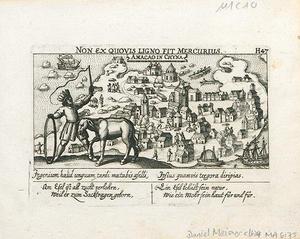 MC10
NON EX QUOVIS LIGNO FIT MERCURIUS.
H47
AMACAO IN CHYNA
Ingenium haud unquam tardi mutabis aselli,
Ipsius quamvis tergora diripias.
Am Esel ist all zucht verlohren,
Weil er zum Sacktragen geborn,
Ein Esel behelt sein natur,
Wie ein Mohr sein haut für und für.
Daniel Meisner
MA 6173